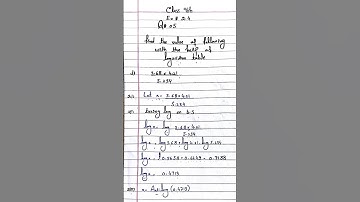 Class 9th
Ex # 2.4
Q # 05
Find the value of following
with the help of
logarithm table
i)
3.68 × 4.21
5.234
Sol:
Let x = 3.68 × 4.21
5.234
Taking log on b.s
log x = log 3.68 × 4.21
5.234
log x = log 3.68 + log 4.21 - log 5.234
log x = 0.5658 + 0.6243 - 0.7188
log x = 0.4713
x = Antilog (0.4713)